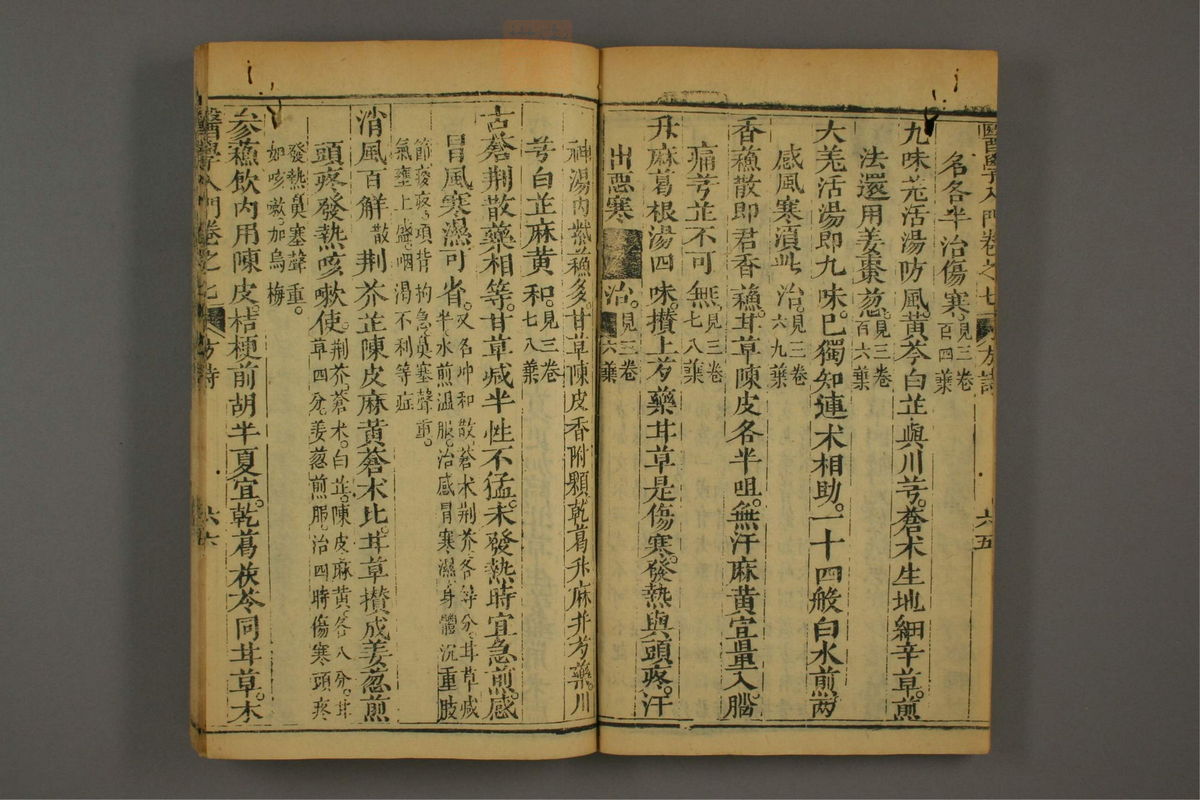 醫學入門卷之七
方詩
六五
名各半治傷寒。見三卷百四葉
九味羌活湯防風黃芩白芷與川芎。蒼朮生地細辛草。煎
法還用姜棗葱。見三卷百六葉
大羌活湯即九味。巳獨知連朮相助。二十四般白水煎兩
感風寒湏此治。見三卷六九葉
香蘓散即君香蘓。甘草陳皮各半咀。無汗麻黃宜量入腦
痛芎芷不可無。見三卷七八葉
升麻葛根湯四味。攅上芍藥甘草是傷寒。發熱與頭疼。汗
出惡寒 治。見三卷 六葉
神湯內紫蘓多。甘草陳皮香附顆乾葛升麻并芍藥。川
芎白芷麻黃和。見三卷七八葉
古蒼荆散藥相等。甘草减半性不猛。未發熱時宜急煎。感
冒風寒濕可省。又名冲和散蒼朮荆芥各等分甘草减半水煎温服。治感冒寒濕身體沉重肢
節痠疼。頭背拘急。鼻塞聲重。氣壅上盛。咽渴不利等症
消風百解散荆芥芷陳皮麻黃蒼朮比。甘草攅成姜葱煎
頭疼發熱咳嗽使。荆芥。蒼朮。白芷。陳皮麻黃。各八分。甘草四分姜葱煎服。治四時傷寒頭疼
發熱鼻塞聲重。如咳嗽。加烏梅
參蘓飲內用陳皮。桔梗前胡半夏宜。乾葛茯苓同甘草。木
醫學入門卷之七
方詩
六六